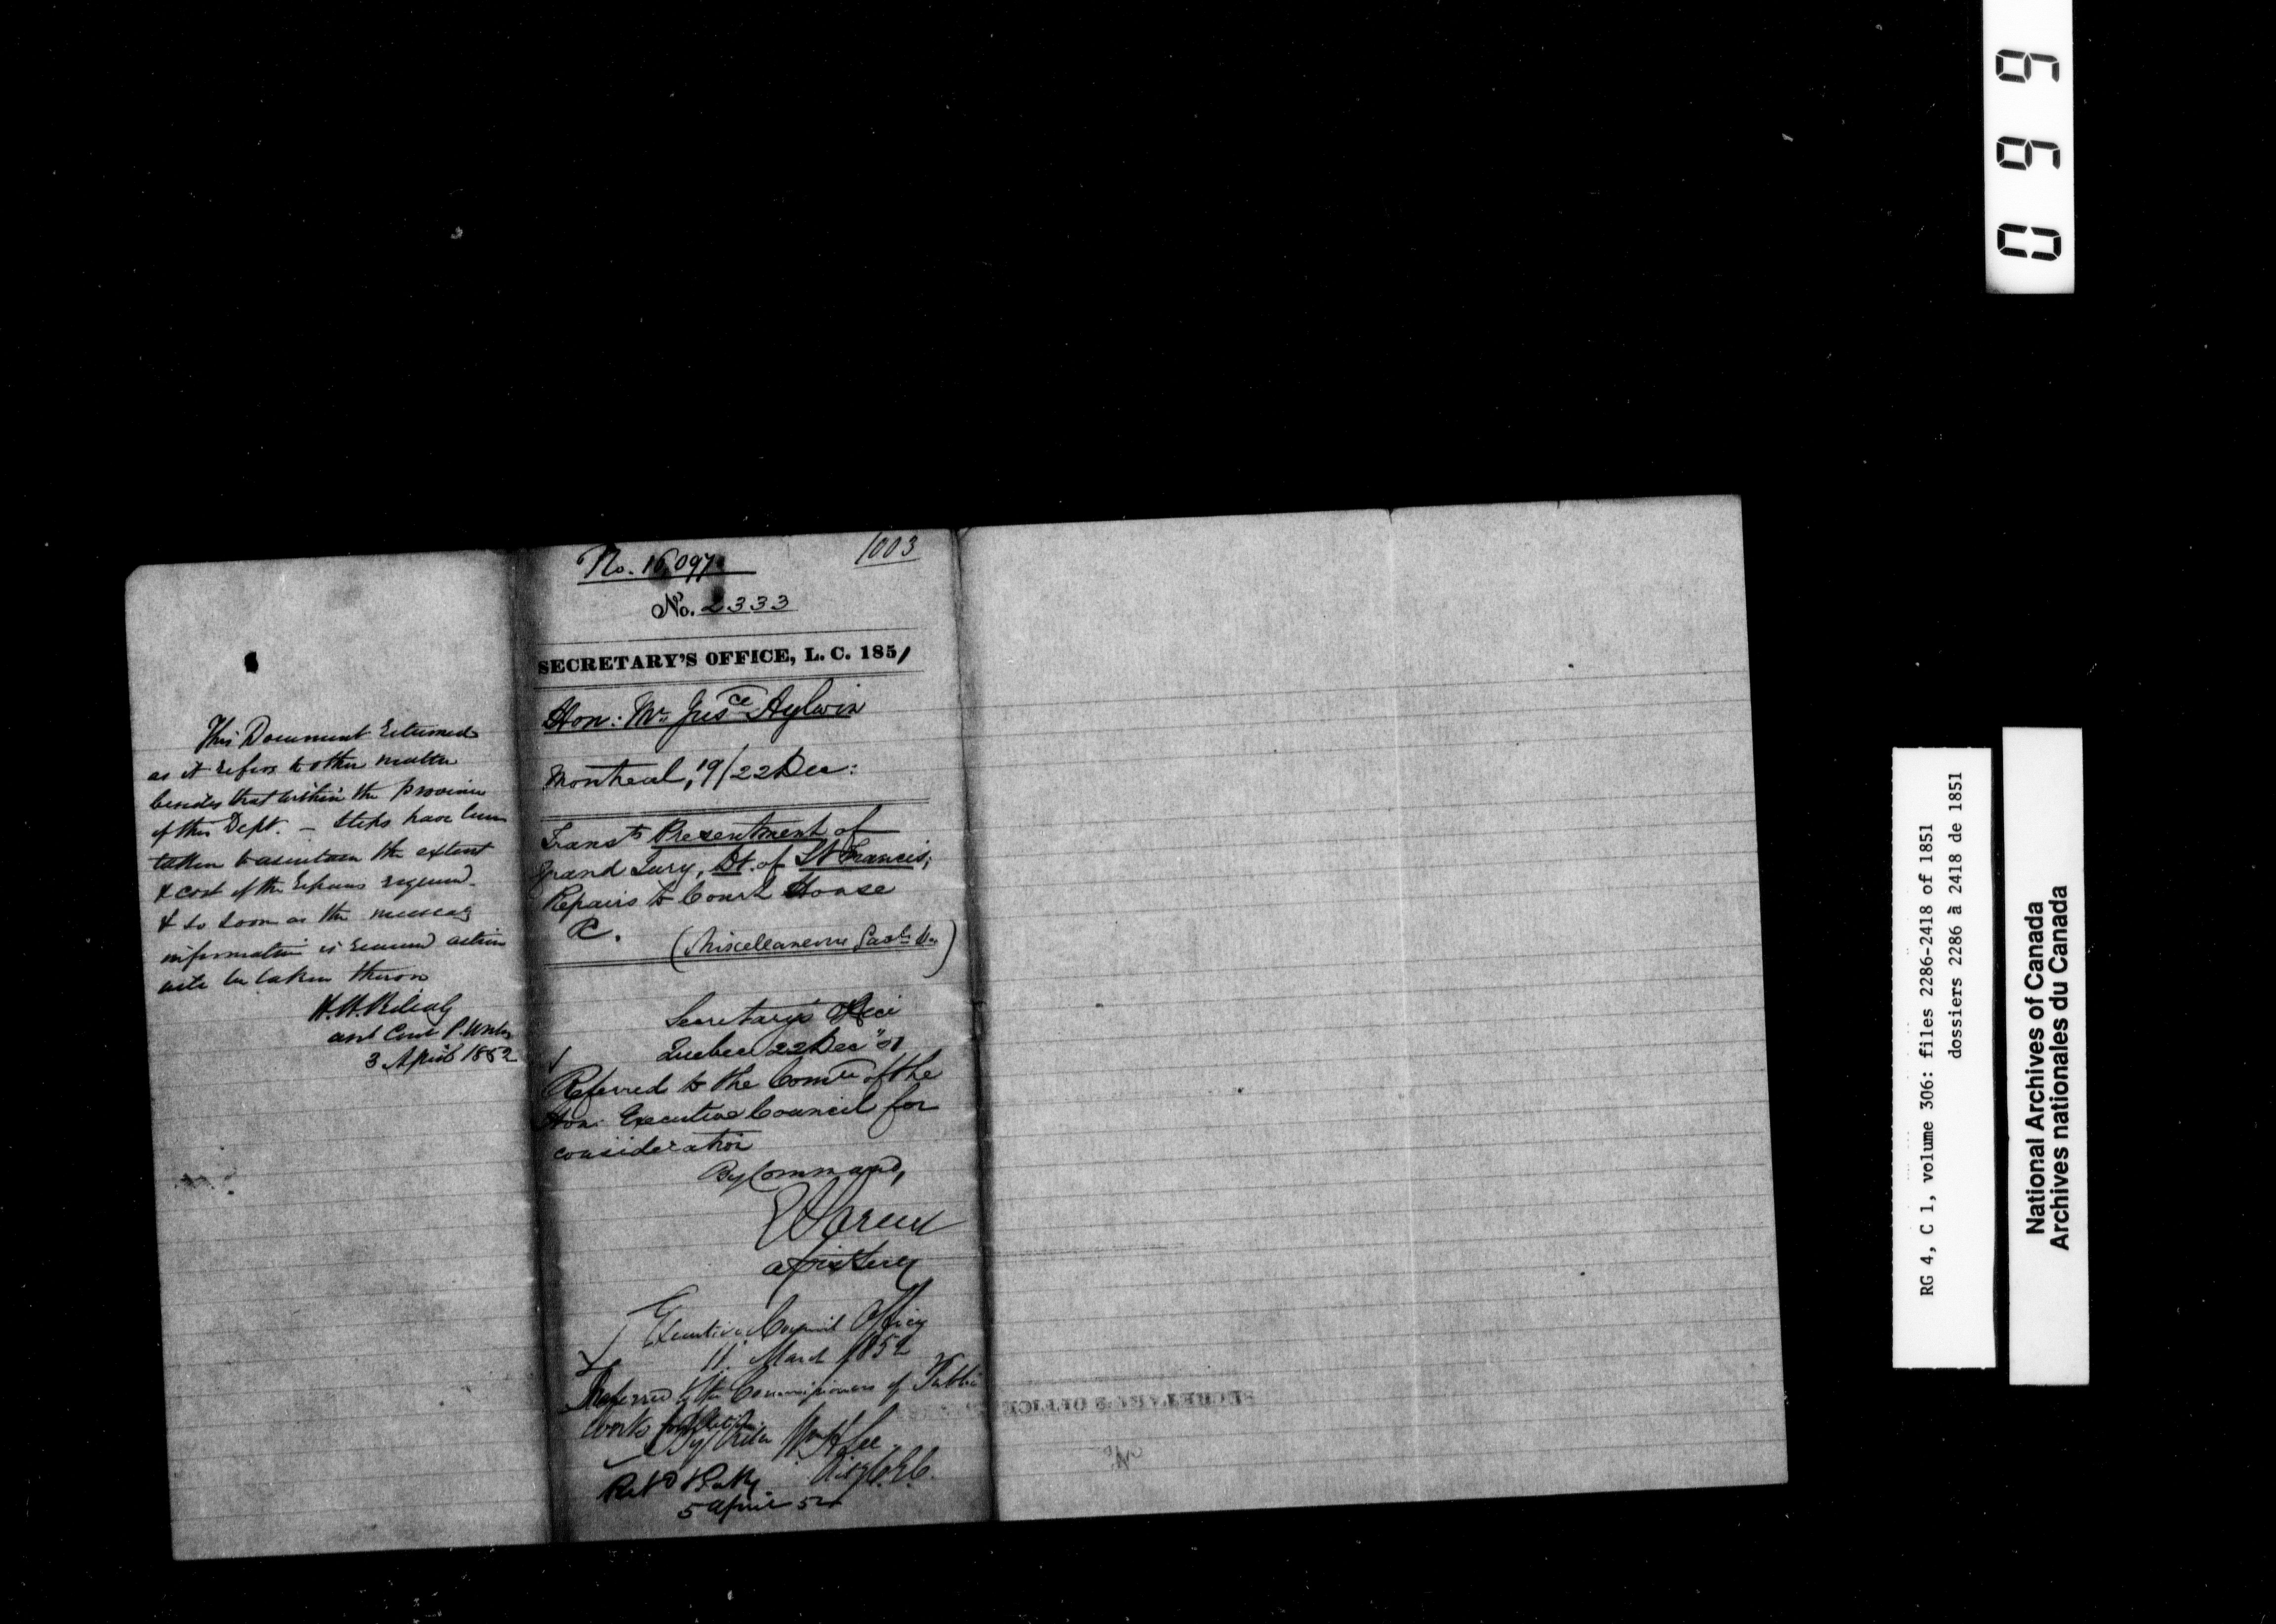 This Document returned
as it refers to other matter
besides that within the province
of this Dept. — Steps have been
taken to ascertain the extent
& cost of the repairs required
& so soon as the necessary
information is received action
will be taken thereon
H.H. Killaly
asst Comr P. Works
3 April 1852
No. 16,097
1003
No. 2333
SECRETARY'S OFFICE, L. C. 1851
Hon: Mr. Jusce Aylwin
Montreal, 19/22 Dec:
Transts Presentment of
Grand Jury, Dt. of St Francis;
Repairs to Court House
&.
(Miscellaneous
Secretary's Office
Quebec 22 Dec " 51
Referred to the Comtee of the
Hon: Executive Council for
consideration
By Command,
E Parent
Executive Council Office
11. March 1852
Referred to the Commissioners of Public
Works
By Order Wm H Lee
5 April 52
SECRETARY'S OFFICE
No.
0 9 9
RG 4, C 1, volume 306: files 2286-2418 of 1851
dossiers 2286 à 2418 de 1851
National Archives of Canada
Archives nationales du Canada